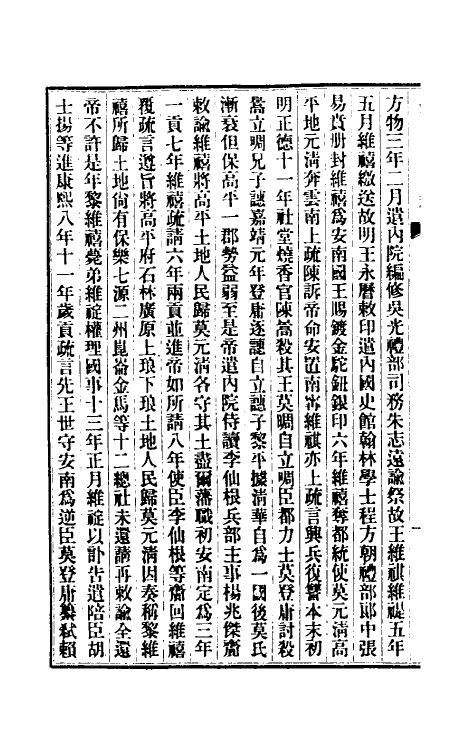 方物三年二月遣內院編修吳光禮部司務朱志遠諭祭故王維祺維禔五年
五月維禧繳送故明王永曆敕印遣內國史館翰林學士程方朝禮部郎中張
易賁冊封維禧爲安南國王賜鍍金駝鈕銀印六年維禧奪都統使莫元淸高
平地元淸奔雲南上疏陳訴帝命安置南甯維祺亦上疏言興兵復讐本末初
明正德十一年社堂燒香官陳暠殺其王莫晭自立晭臣都力士莫登庸討殺
暠立晭兄子譓嘉靖元年登庸逐譓自立譓子黎平據淸華自爲一國後莫氏
漸衰但保高平一郡勢益弱至是帝遣內院侍讀李仙根兵部主事楊兆傑齎
敕諭維禧將高平土地人民歸莫元淸各守其土盡爾藩職初安南定爲三年
一貢七年維禧疏請六年兩貢並進帝如所請八年使臣李仙根等齎回維禧
覆疏言遵旨將高平府石林廣原上琅下琅土地人民歸莫元淸因奏稱黎維
禧所歸土地尙有保樂七源二州崑崙金馬等十二總社未還請再敕諭全還
帝不許是年黎維禧薨弟維䄇權理國事十三年正月維䄇以訃吿遣陪臣胡
士揚等進康熙八年十一年歲貢疏言先王世守安南爲逆臣莫登庸纂弒賴